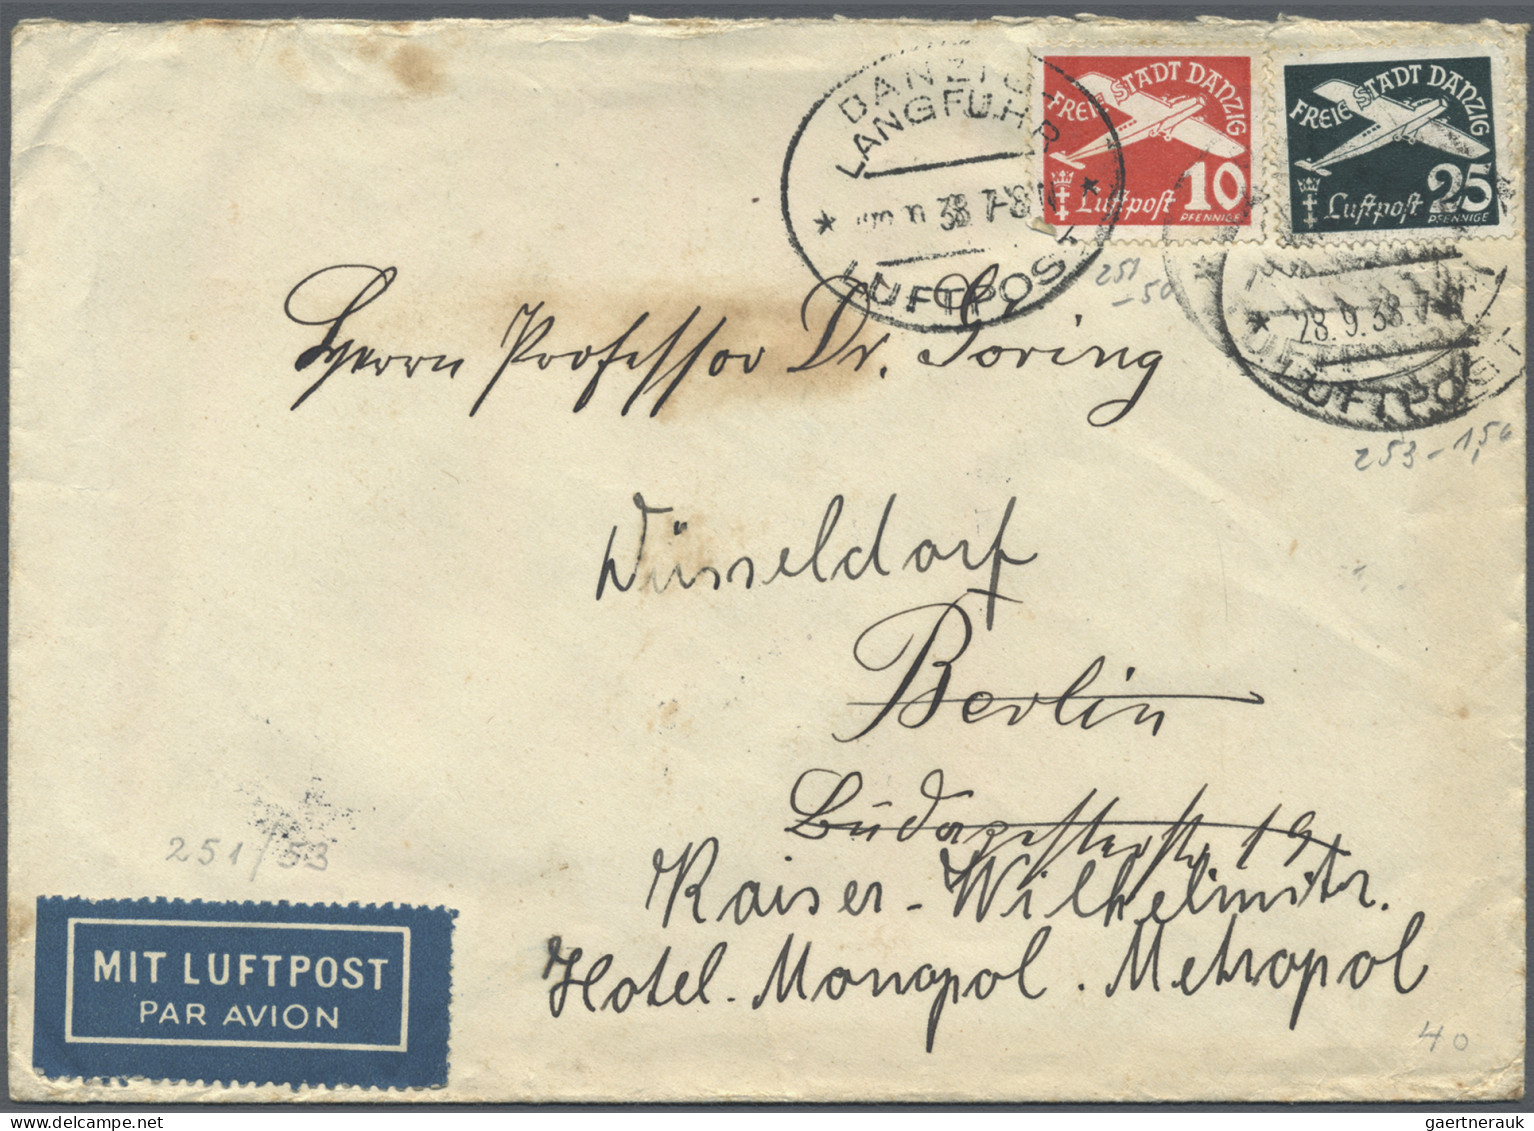 DANZIG-
LANGFUHR
38 7-8 N
LUFTPOST
FREIE STADT DANZIG
Luftpost 10
PFENNIGE
FREIE STADT DANZIG
Luftpost 25
PFENNIGE
28.9.38.7-8
LUFTPOST
251
-50
253-1,50
Herrn Professor Dr. G. Göring
Düsseldorf
Berlin
Budapesterstr. 19
Kaiser-Wilhelmstr.
Hotel. Monopol. Metropol
251/53
MIT LUFTPOST
PAR AVION
40
gaertnerauk www.delcampe.net